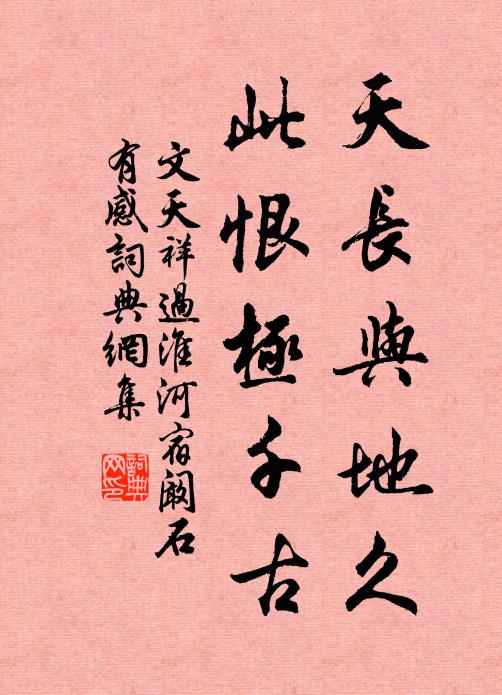 天長與地久
此恨極千古
文天祥過淮河宿闞石
有感詞典網集
詞典
网印